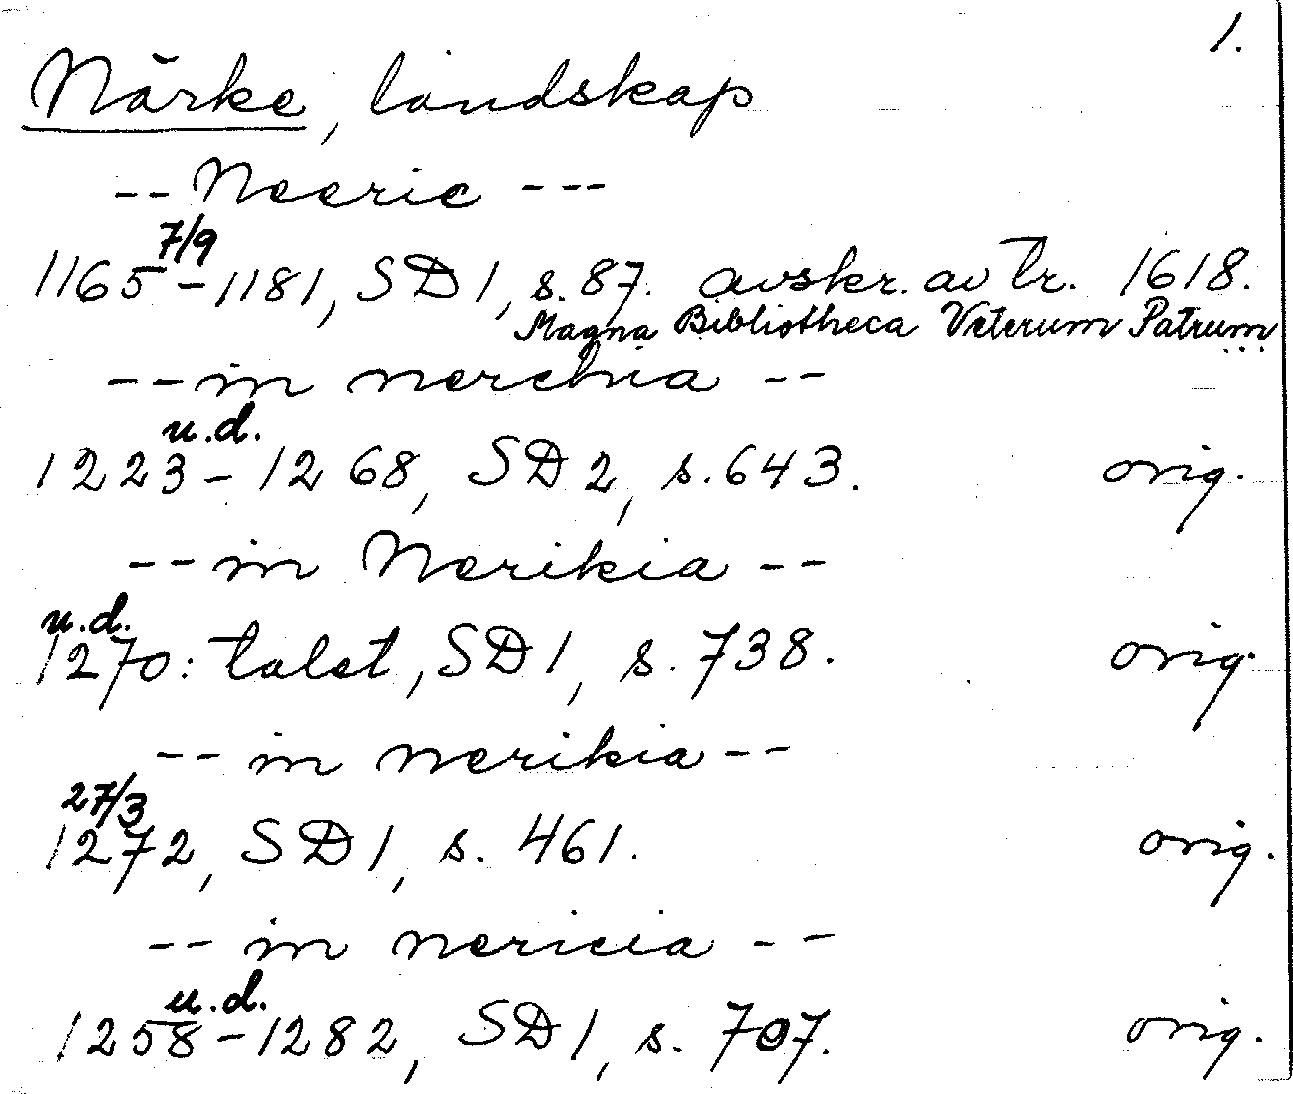 1.
Närke, landskap
-- Neeric ---
7/9
1165-1181, SD 1, s. 87. avskr. av tr. 1618.
Magna Bibliotheca Veterum Patrum...
-- in nerchia --
u.d.
1223-1268, SD 2, s. 643. orig.
-- in Nerikia --
u.d.
1270:talet, SD 1, s. 738. orig.
-- in nerikia --
27/3
1272, SD 1, s. 461. orig.
-- in nericia --
u.d.
1258-1282, SD 1, s. 707. orig.